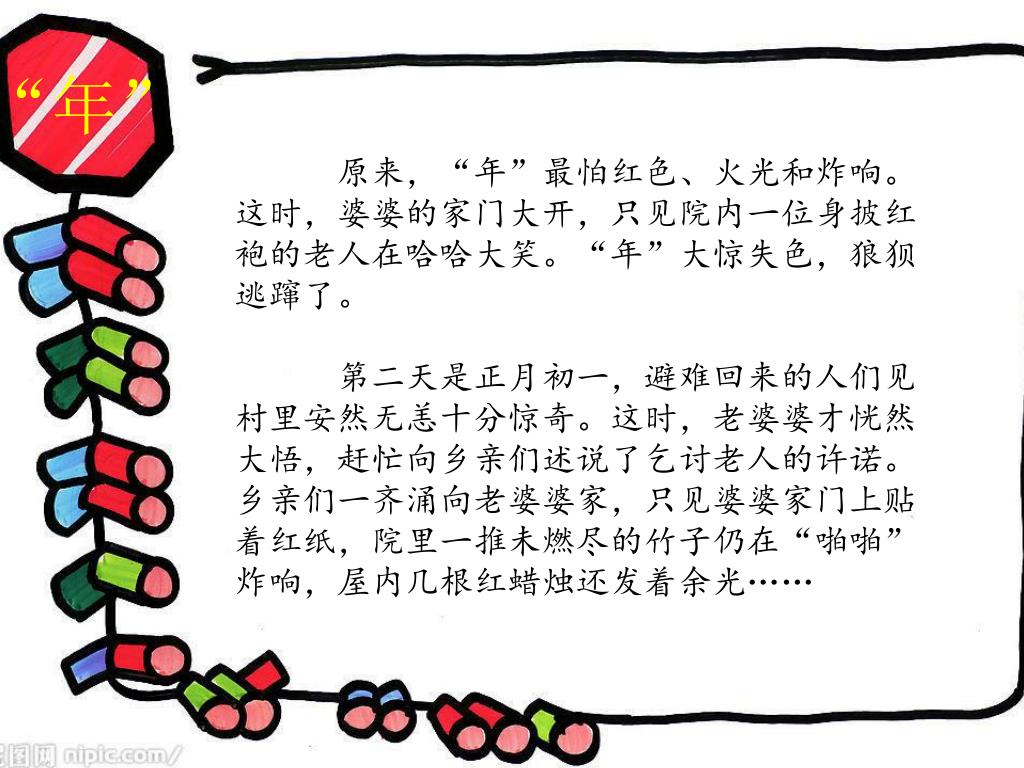 “年”
原来，“年”最怕红色、火光和炸响。
这时，婆婆的家门大开，只见院内一位身披红
袍的老人在哈哈大笑。“年”大惊失色，狼狈
逃蹿了。
第二天是正月初一，避难回来的人们见
村里安然无恙十分惊奇。这时，老婆婆才恍然
大悟，赶忙向乡亲们述说了乞讨老人的许诺。
乡亲们一齐涌向老婆婆家，只见婆婆家门上贴
着红纸，院里一推未燃尽的竹子仍在“啪啪”
炸响，屋内几根红蜡烛还发着余光……
图网 nipic.com/